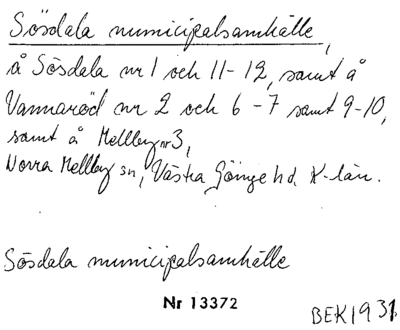 Sösdala municipalsamhälle,
å Sösdala nr 1 och 11-12, samt å
Vannaröd nr 2 och 6-7 samt 9-10,
samt å Mellby nr 3,
Norra Mellby sn, Västra Göinge hd. K-län.
Sösdala municipalsamhälle
Nr 13372
BEK 1931